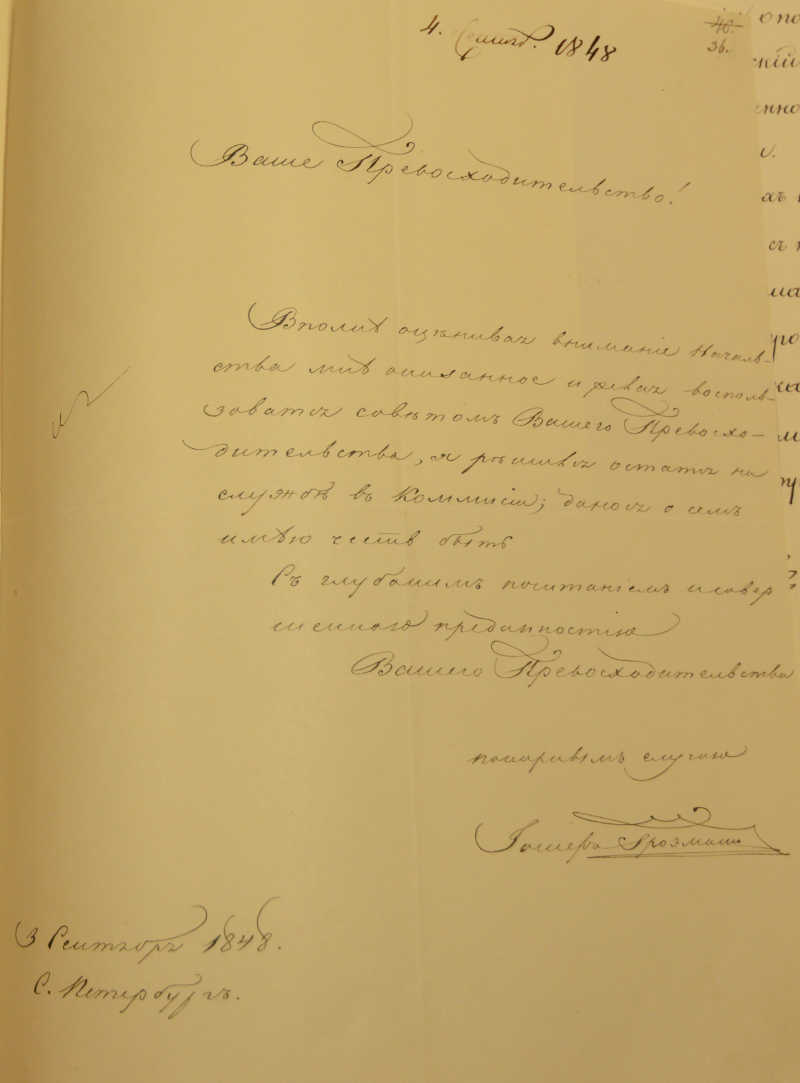 4. Сентяб. 1848
40.
36.
Ваше Превосходительство!
Вполнѣ оцѣнивая вниманіе Началь-
ства мнѣ оказанное и желая восполь-
зоватся совѣтомъ Вашего Превосхо-
дительства, я рѣшился остатся на
службѣ въ Коммисіи; донося о семъ
имѣю честь быть
Съ глубочимъ почитаніемъ и совер
шенною преданностію
Вашего Превосходительства
покорнымъ слугою
Грозманъ
3 Сентября 1848.
С. Петербургъ.